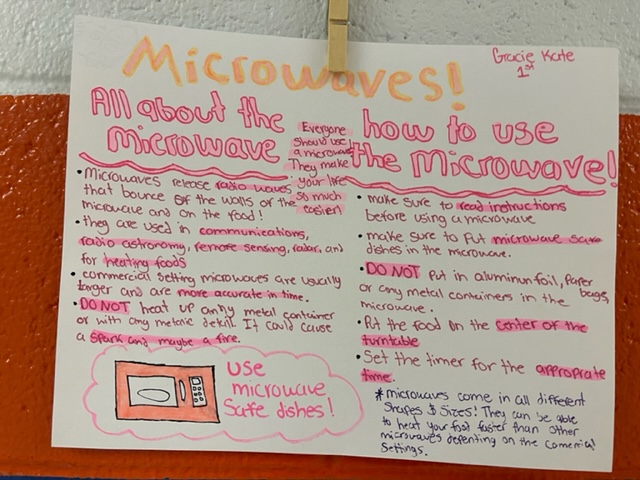 Microwaves!
Gracie Kate
1st
All about the
Microwave
Everyone
should use
a microwave
They make
your life
so much
easier!
• Microwaves release radio waves
that bounce off the walls of the
microwave and on the food!
• they are used in communications,
radio astronomy, remote sensing, radar, and
for heating foods
• commercial setting microwaves are usually
larger and are more accurate in time.
• DO NOT heat up any metal container
or with any metalic detail. It could cause
a spark and maybe a fire.
use
microwave
Safe dishes!
how to use
the Microwave!
• make sure to read instructions
before using a microwave
• make sure to Put microwave safe
dishes in the microwave.
• DO NOT Put in aluminun foil, Paper bags,
or any metal containers in the
microwave.
• Put the food on the center of the
turntable
• Set the timer for the
time.
* microwaves come in all different
Shapes & Sizes! They can be able
to heat your food faster than other
microwaves depending on the
Settings.